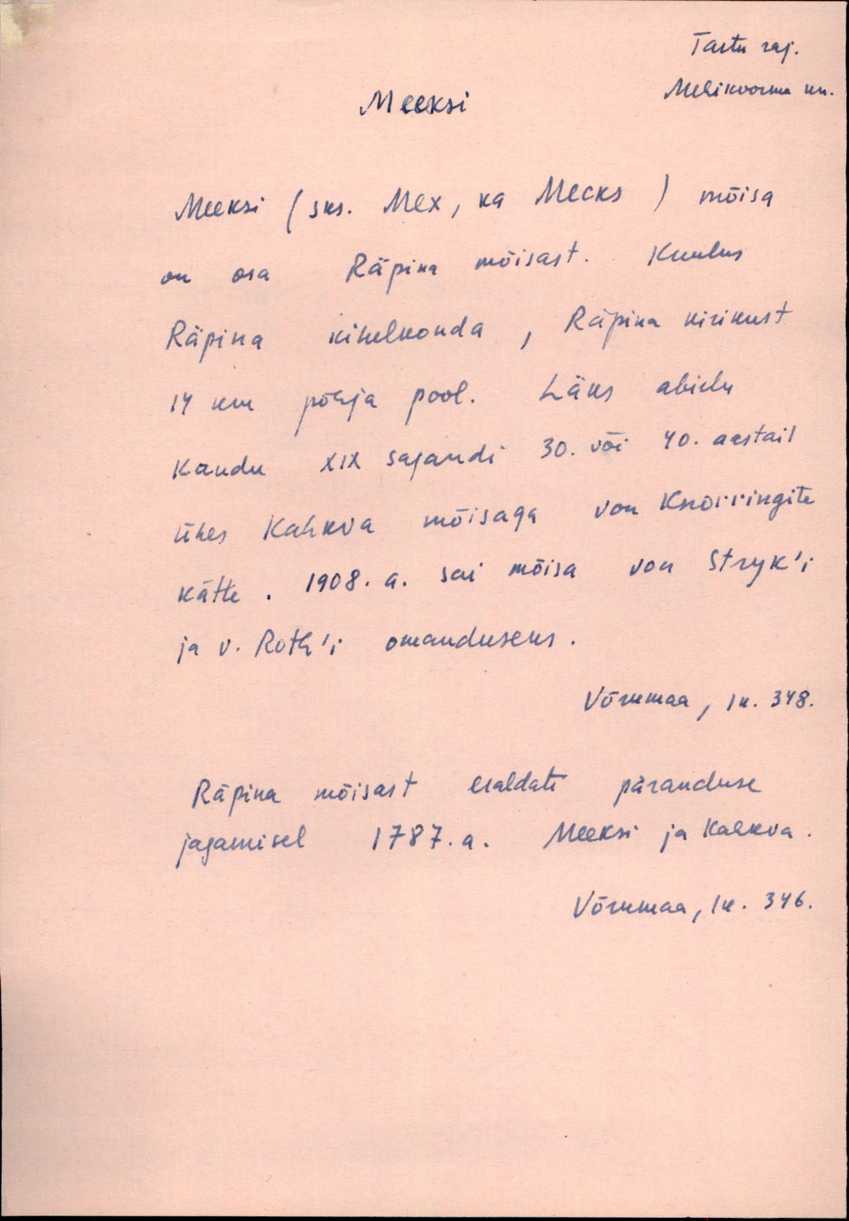 Tartu raj.
Mehikoorma kn.
Meeksi
Meeksi (sks. Mex, ka Mecks) mõisa
on osa Räpina mõisast. Kuulus
Räpina kihelkonda, Räpina kirikust
14 km põhja pool. Läks abielu
kaudu XIX sajandi 30. või 40. aastail
ühes Kahkva mõisaga von Knorringite
kätte. 1908. a. sai mõisa von Stryk'i
ja v. Roth'i omanduseks.
Võrumaa, lk. 348.
Räpina mõisast eraldati päranduse
jagamisel 1787. a. Meeksi ja Kahkva.
Võrumaa, lk. 346.